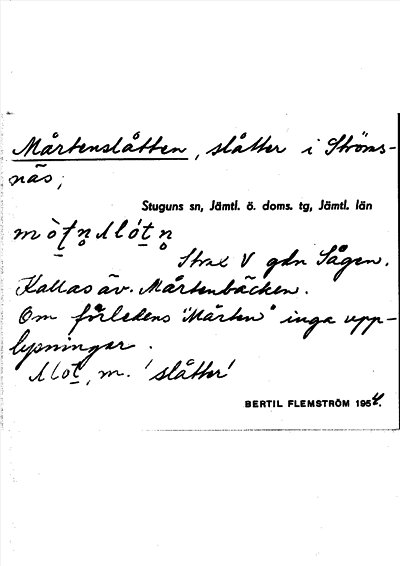 Mårtenslåtten, slåtter i Ströms-
näs;
Stuguns sn, Jämtl. ö. doms. tg, Jämtl. län
Strax V gdn Sågen.
Kallas äv. Mårtenbäcken.
Om förledens "Mårten" inga upp-
lysningar.
slot, m. 'slåtter'
BERTIL FLEMSTRÖM 1954.